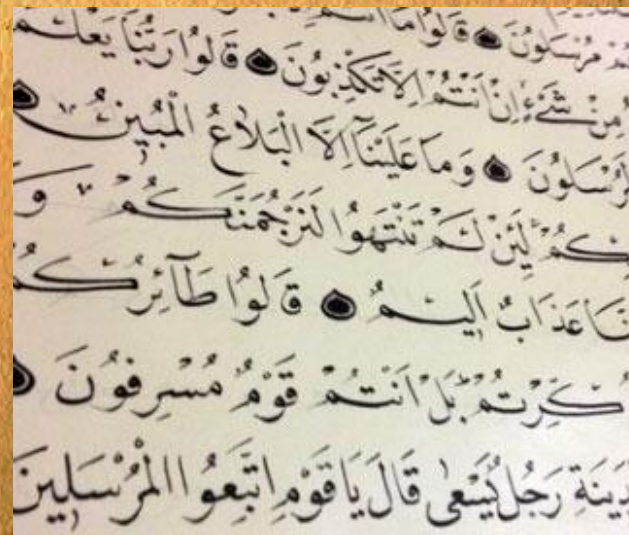 مُرْسَلُونَ ۝ قَالُوا مَا اَنْتُمْ
مِنْ شَیْءٍ اِنْ اَنْتُمْ اِلَّا تَكْذِبُونَ ۝ قَالُوا رَبُّنَا يَعْلَمُ
لَمُرْسَلُونَ ۝ وَمَا عَلَيْنَا اِلَّا الْبَلَاغُ الْمُبٖينُ ۝
بِكُمْ لَئِنْ لَمْ تَنْتَهُوا لَنَرْجُمَنَّكُمْ وَ
نَّا عَذَابٌ اَلٖيمٌ ۝ قَالُوا طَآئِرُكُمْ
ذُكِّرْتُمْ بَلْ اَنْتُمْ قَوْمٌ مُسْرِفُونَ ۝
دٖينَةِ رَجُلٌ يَسْعٰى قَالَ يَا قَوْمِ اتَّبِعُوا الْمُرْسَلٖينَ